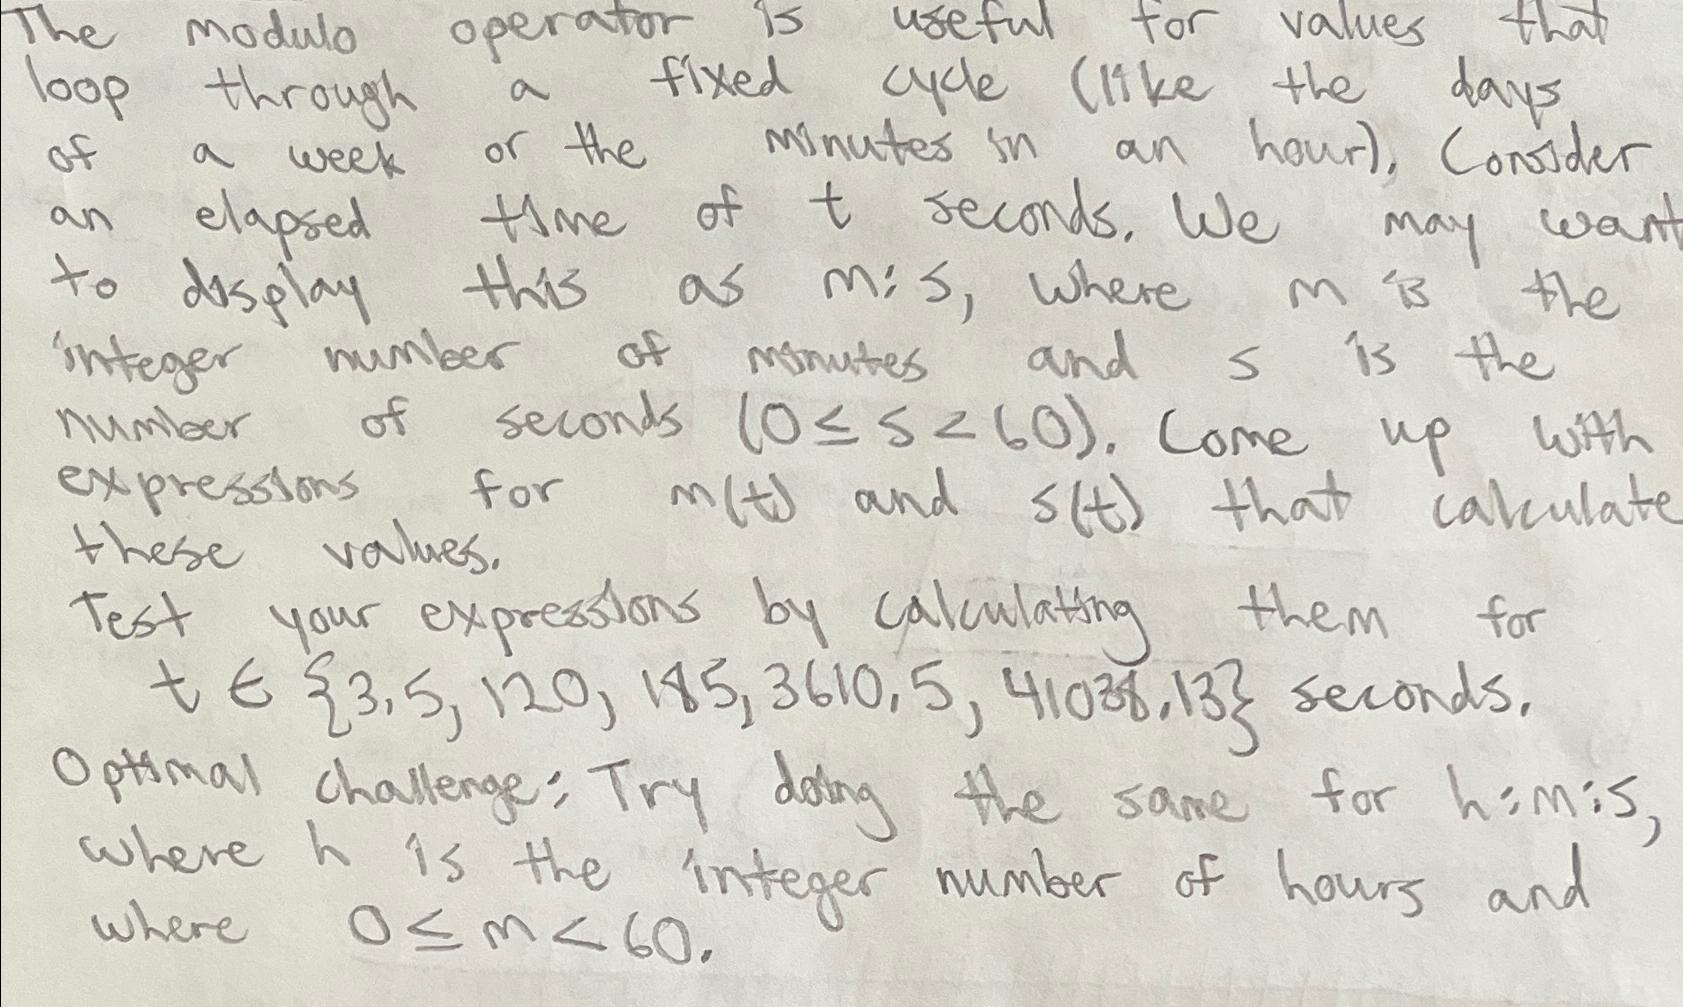 The modulo operator is useful for values that
loop through a fixed cycle (like the days
of a week or the minutes in an hour). Consider
an elapsed time of t seconds. We may want
to display this as m:s, where m is the
integer number of minutes and s is the
number of seconds (0≤s<60). Come up with
expressions for m(t) and s(t) that calculate
these values.
Test your expressions by calculating them for
t ∈ {3.5, 120, 185, 3610.5, 41038.13} seconds.
Optimal challenge: Try doing the same for h:m:s,
where h is the integer number of hours and
where 0≤m<60.